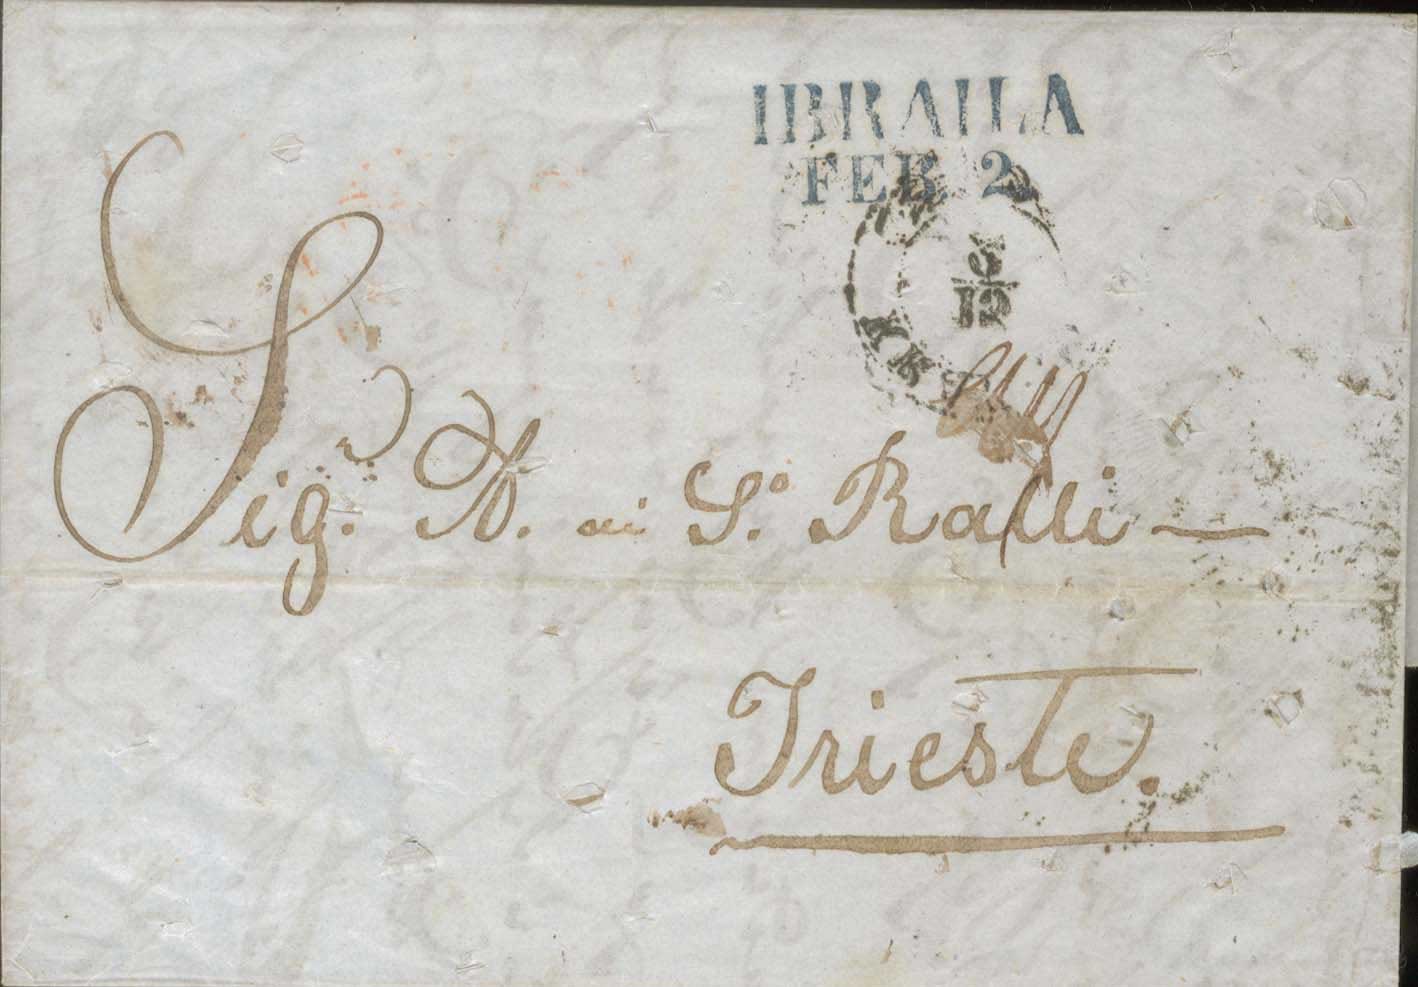 IBRAILA
FEB. 2
3/12
Sig.ʳ A. di S.º Ralli
Trieste.